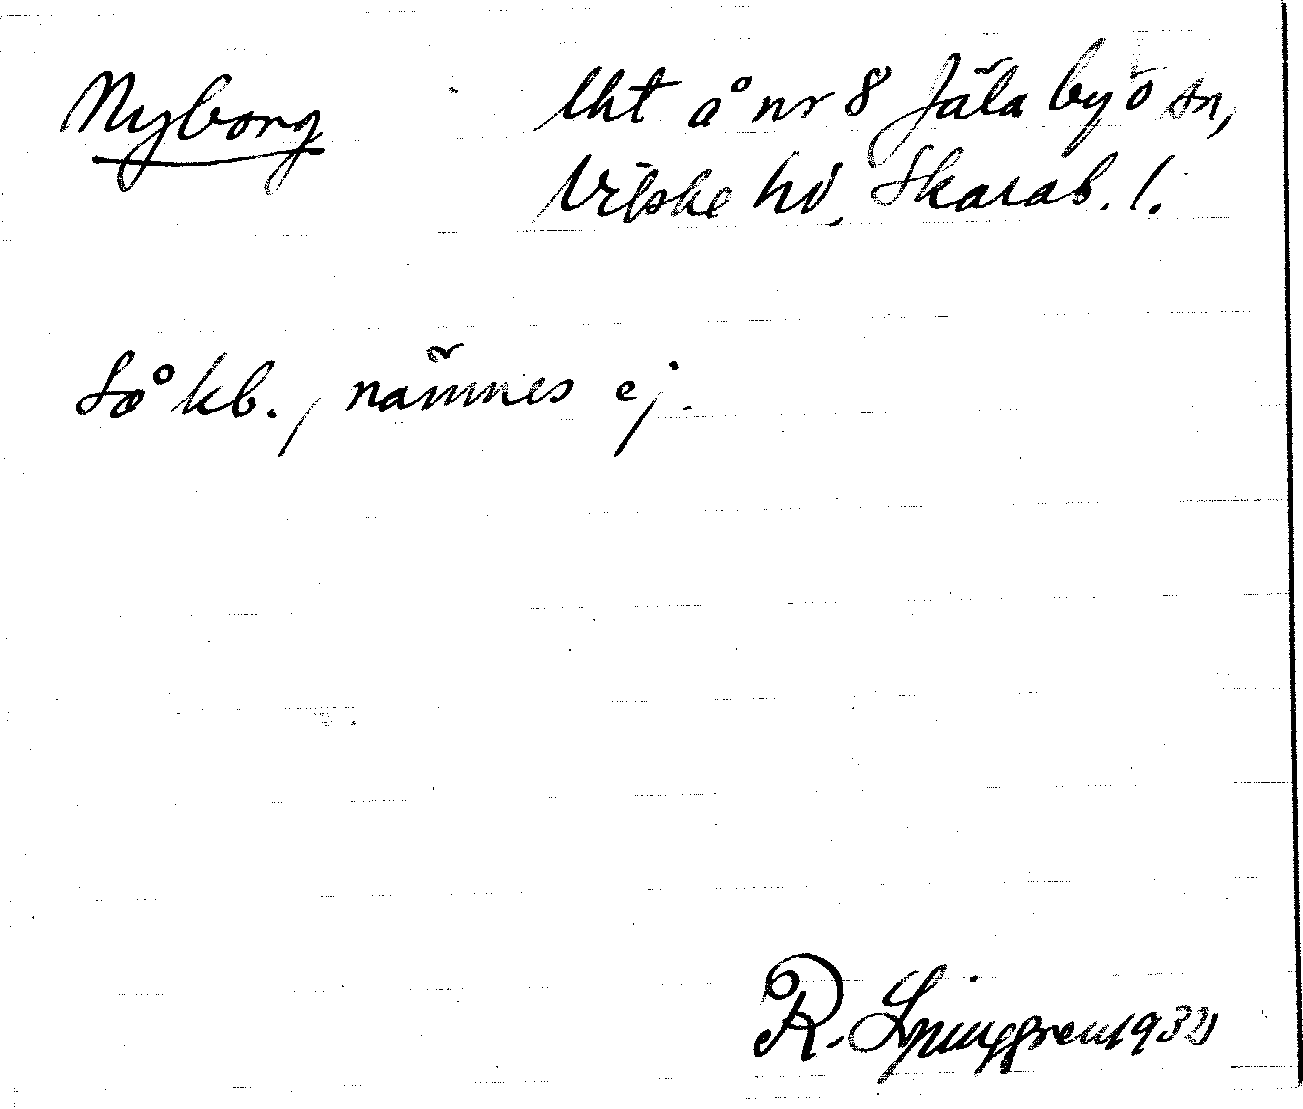 Nyborg lht å nr 8 Jäla by o sn,
Vilske hd. Skarab. l.
Så kb., nämnes ej.
R. Ljunggren 1932